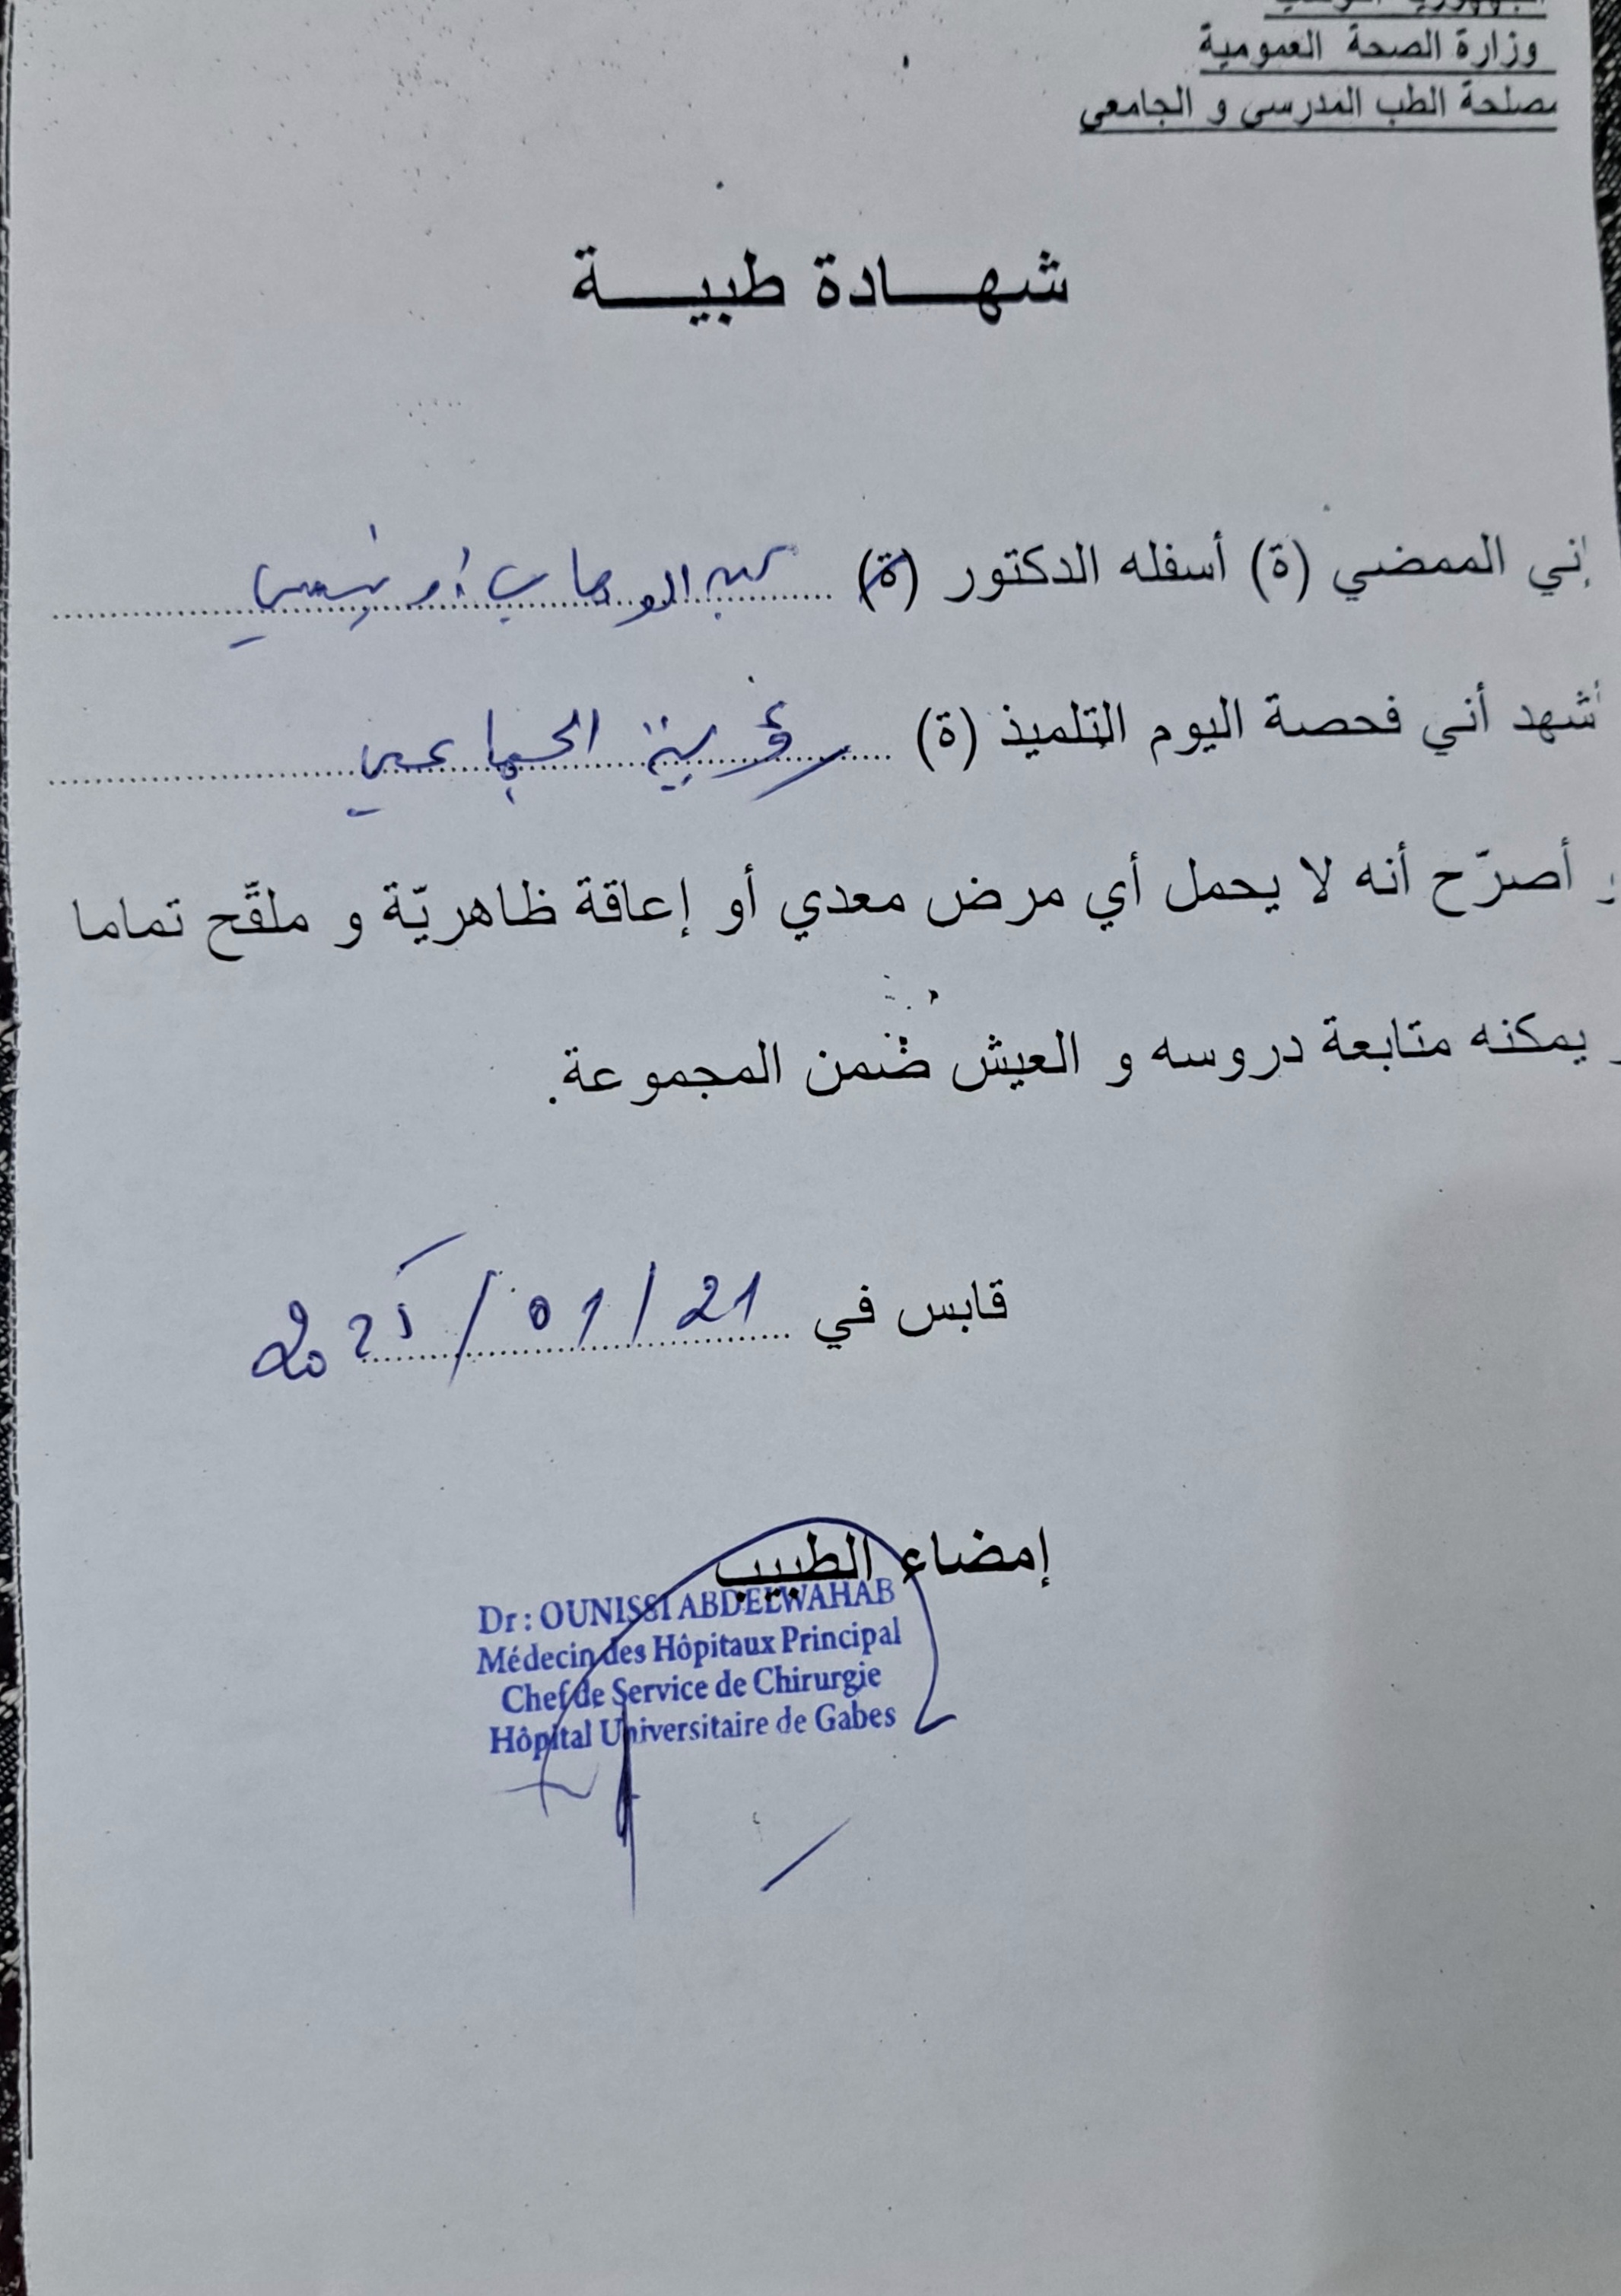 وزارة الصحة العمومية
مصلحة الطب المدرسي و الجامعي
شهادة طبية
إني الممضي (ة) أسفله الدكتور (ة) عبد الوهاب أونيسي
أشهد أني فحصة اليوم التلميذ (ة) رؤية
و أصرّح أنه لا يحمل أي مرض معدي أو إعاقة ظاهريّة و ملقّح تماما
و يمكنه متابعة دروسه و العيش ضمن المجموعة.
قابس في 21/01/2025
إمضاء الطبيب
Dr: OUNISSI ABDELWAHAB
Médecin des Hôpitaux Principal
Chef de Service de Chirurgie
Hôpital Universitaire de Gabes